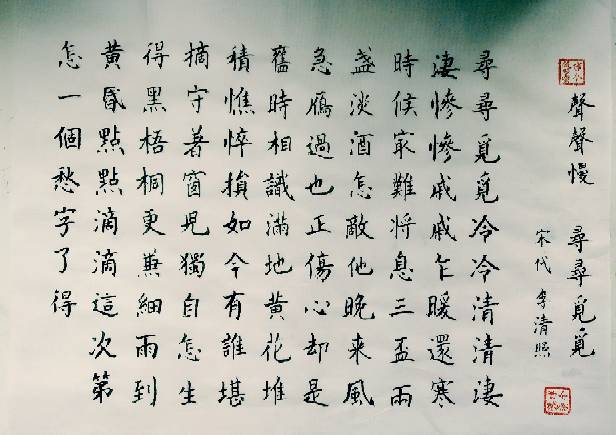 聲聲慢 尋尋覓覓
宋代 李清照
尋尋覓覓冷冷清清淒
淒慘慘戚戚乍暖還寒
時候㝡難將息三盃兩
盞淡酒怎敵他晚來風
急鴈過也正傷心却是
舊時相識滿地黃花堆
積憔悴損如今有誰堪
摘守著窗兒獨自怎生
得黑梧桐更兼細雨到
黃昏點點滴滴這次第
怎一個愁字了得